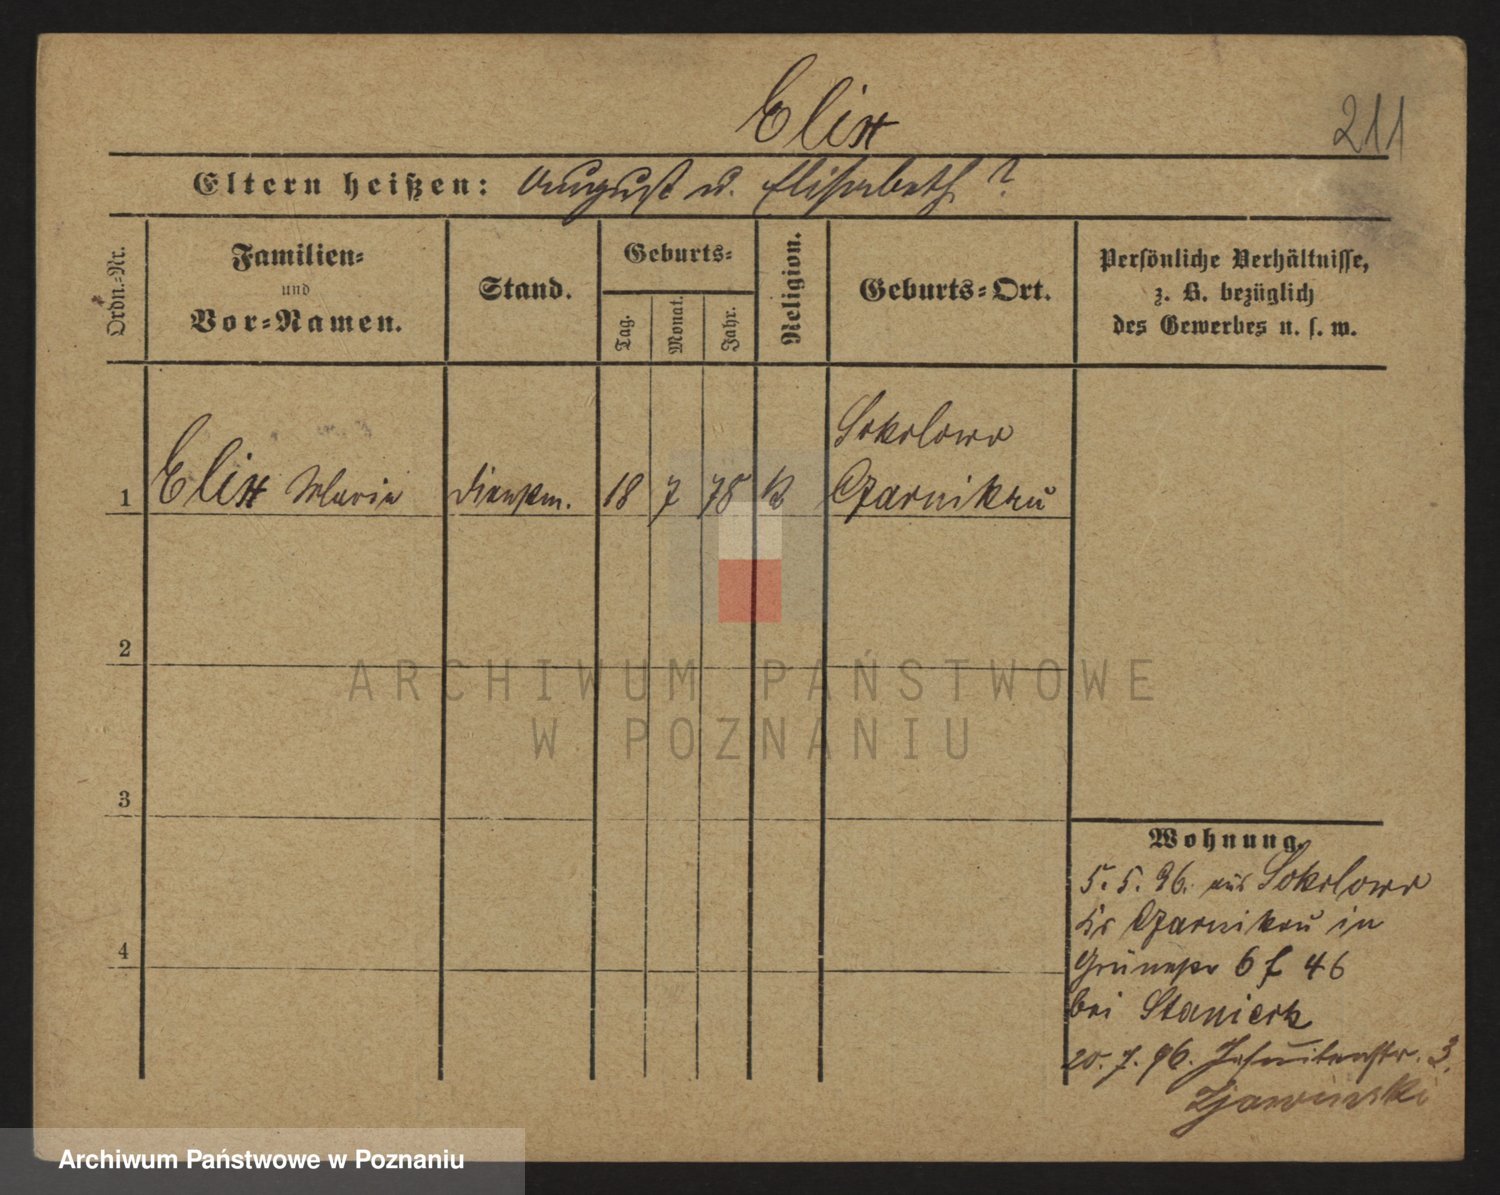 Elixx
211
Eltern heißen: August u. Elisabeth ?
Ordn.-Nr.
Familien-
und
Vor-Namen.
Stand.
Geburts-
Tag.
Monat.
Jahr.
Religion.
Geburts-Ort.
Persönliche Verhältnisse,
z. B. bezüglich
des Gewerbes u. s. w.
Sokolowo
1 Marie Dienstm. 18 7 78 K Czarnikau
2
3
4
Wohnung.
5. 5. 96. aus Sokolowo
Kr Czarnikau in
Grünestr 6 46
bei
20. 7. 96. Jesuitenstr. 3.
ARCHIWUM PAŃSTWOWE
W POZNANIU
Archiwum Państwowe w Poznaniu